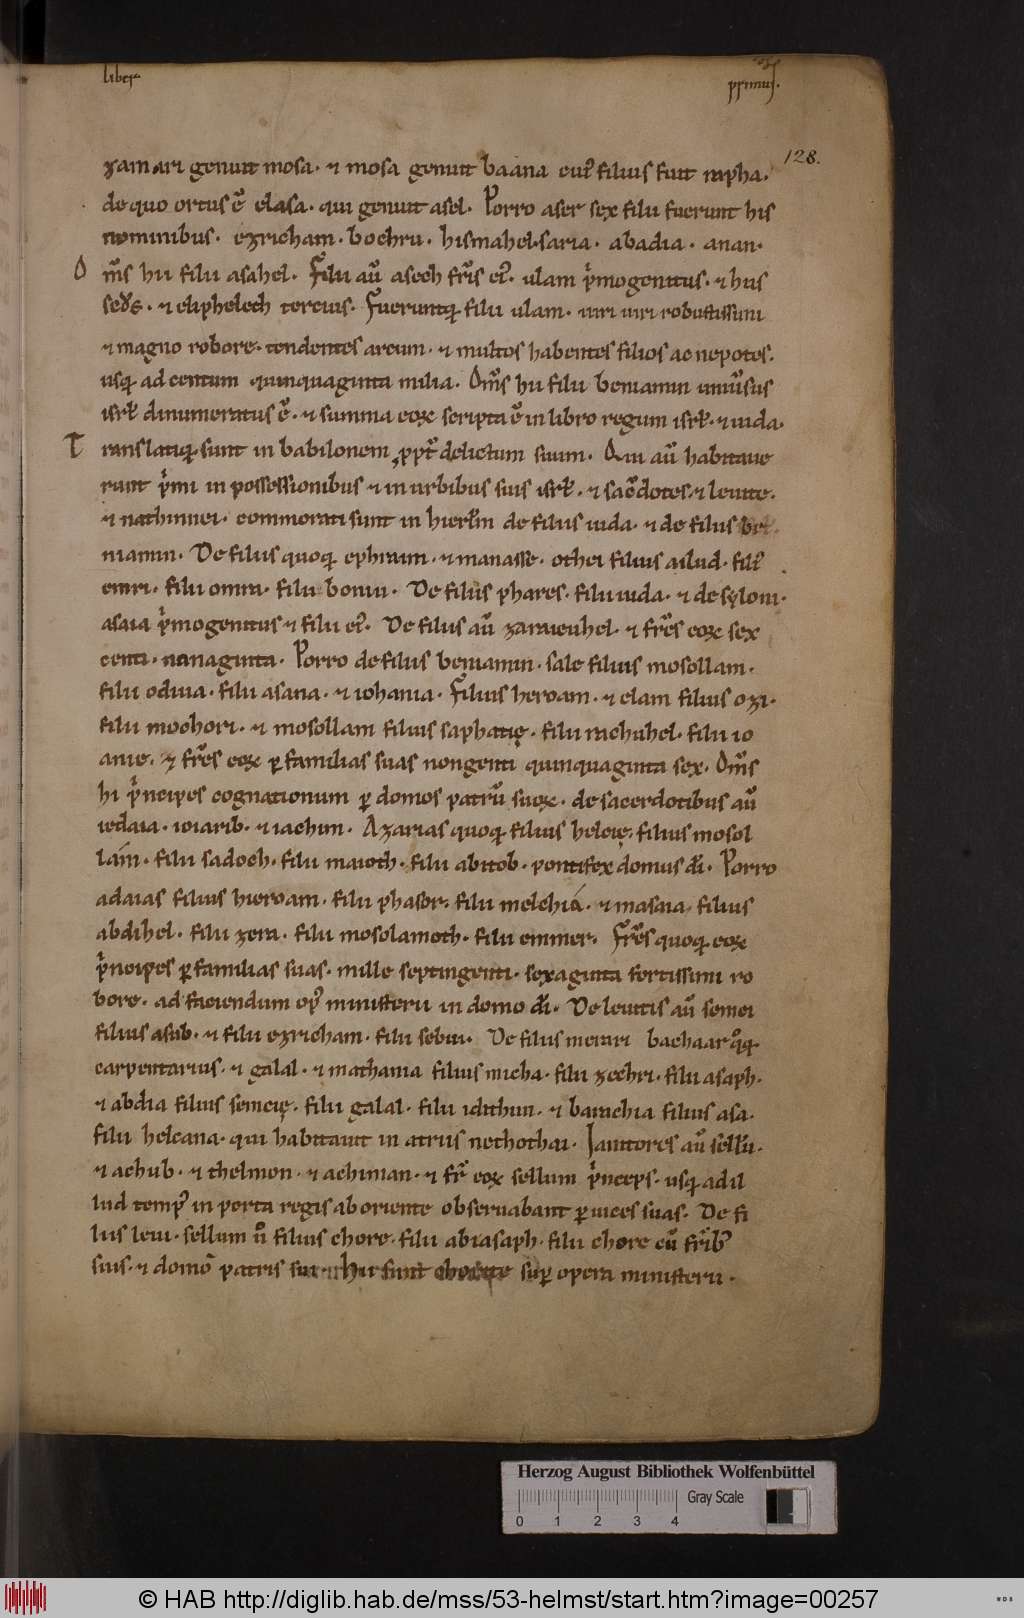 liber
primus.
128.
zamari genuit mosa. et mosa genuit baana cuiꝰ filius fuit rapha.
de quo ortus ē elasa. qui genuit asel. Porro aser sex filii fuerunt his
nominibus. ezricham. bochru. hismahel. saria. abadia. anan.
Om̄s hii filii asahel. Filii aū asech fr̄is eiꝰ. ulam p̓mogenitus. et hus
sed̄s. et eliphelech tercius. Fueruntq; filii ulam. uiri uiri robustissimi
et magno robore. tendentes arcum. et multos habentes filios ac nepotes.
usq; ad centum quinquaginta milia. Om̄s hii filii beniamin uniūsus
isrl̄ dinumeratus ē. et summa eoꝝ scripta ē in libro regum isrl̄. et iuda.
Translatiq; sunt in babilonem ꝓpt̄ delictum suum. Qui aū habitaue
runt p̓mi in possessionibus et in urbibus suis isrl̄. et sac̄dotes. et leuite.
et nathinnei. commorati sunt in hierl̄m de filiis iuda. et de filiis be
niamin. De filiis quoq; ephraim. et manasse. othei filius ailud. filii
emri. filii omra. filii bonui. De filiis phares. filii iuda. et de sęloni.
asaia p̓mogenitus et filii eiꝰ. De filiis aū zaraieuhel. et fr̄es eoꝝ sex
centi. nanaginta. Porro de filiis beniamin. sale filius mosollam.
filii oduia. filii asana. et iohania. Filius heroam. et elam filius ozi.
filii mochori. et mosollam filius saphatię. filii rachuhel. filii io
anie. et fr̄es eoꝝ ꝑ familias suas nongenti quinquaginta sex. Om̄s
hi p̓ncipes cognationum ꝑ domos patrū suoꝝ. de sacerdotibus aū
iedaia. ioiarib. et iachim. Azarias quoq; filius helcię. filius mosol
lam. filii sadoch. filii maioth. filii abitob. pontifex domus dī. Porro
adaias filius hieroam. filii phasor. filii melchia. et masaia. filius
abdihel. filii zera. filii mosolamoth. filii emmer. Fr̄es quoq; eoꝝ
p̓ncipes ꝑ familias suas. mille septingenti. sexaginta fortissimi ro
bore. ad faciendum opꝰ ministerii in domo dī. De leuitis aū semei
filius asub. et filii ezricham. filii sebiu. De filiis merari bachaar qͦq;
carpentarius. et galal. et mathania filius micha. filii zechri. filii asaph.
et abdia filius semeię. filii galal. filii idithun. et barachia filius asa.
filii helcana. qui habitauit in atriis nethothai. Ianitores aū sellū.
et achub. et thelmon. et achiman. et fr̄ eoꝝ sellum p̓nceps. usq; ad il
lud tempꝰ in porta regis ab oriente obseruabant ꝑ uices suas. De fi
liis leui. sellum uͦ filius chore. filii abiasaph. filii chore cū fr̄ibꝰ
suis. et domō patris sui. Hii sunt chorite suꝑ opera ministerii.
Herzog August Bibliothek Wolfenbüttel
Gray Scale
0 1 2 3 4
© HAB http://diglib.hab.de/mss/53-helmst/start.htm?image=00257